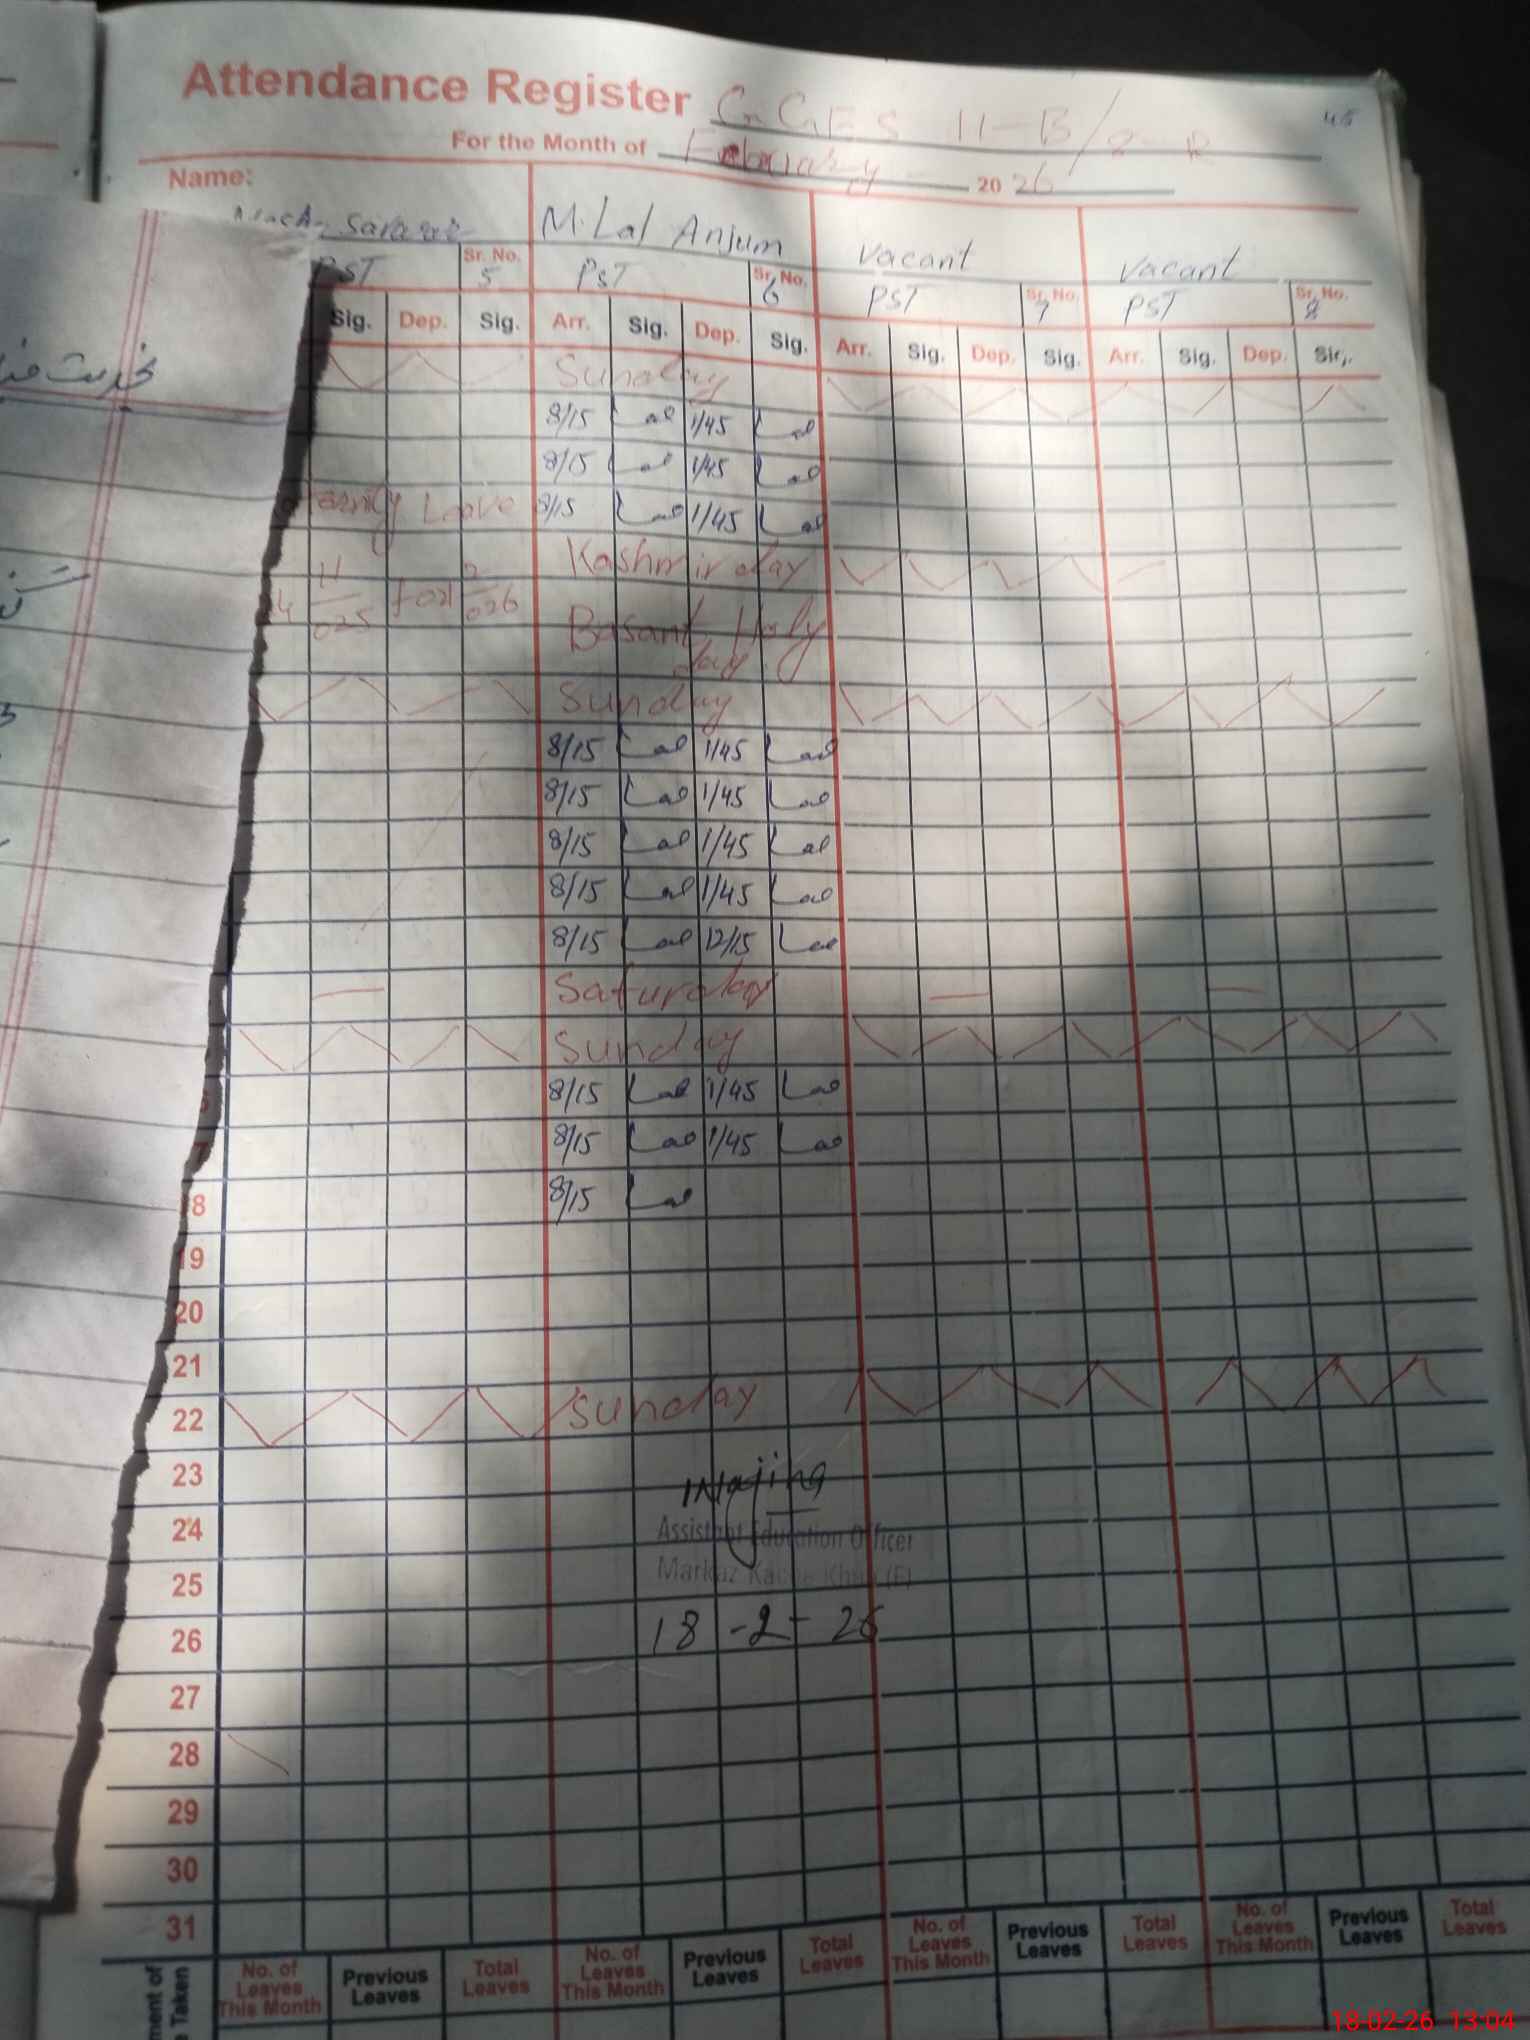 Attendance Register GGES 11-B/2-R
45
For the Month of February 2026
Name:
M. Lal Anjum vacant vacant
PST Sr. No. 5 PST Sr. No. 6 PST Sr. No. 7 PST Sr. No. 8
Sig. Dep. Sig. Arr. Sig. Dep. Sig. Arr. Sig. Dep. Sig. Arr. Sig. Dep. Sig.
Sunday
8/15 Lal 1/45 Lal
8/15 Lal 1/45 Lal
ernity Leave 8/15 Lal 1/45 Lal
Kashmir day
Basant Holy
day
Sunday
8/15 Lal 1/45 Lal
8/15 Lal 1/45 Lal
8/15 Lal 1/45 Lal
8/15 Lal 1/45 Lal
8/15 Lal 12/15 Lal
Saturday
Sunday
8/15 Lal 1/45 Lal
7 8/15 Lal 1/45 Lal
18 8/15 Lal
19
20
21
22 Sunday
23
24 Assistant Education Officer
25 Markaz
18-2-26
26
27
28
29
30
31
ment of
Taken
No. of Leaves This Month Previous Leaves Total Leaves No. of Leaves This Month Previous Leaves Total Leaves No. of Leaves This Month Previous Leaves Total Leaves No. of Leaves This Month Previous Leaves Total Leaves
18-02-26 13:04